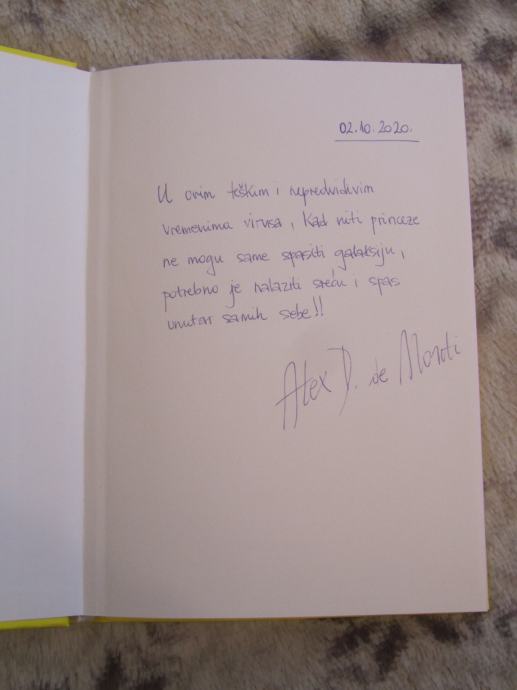 02.10.2020.
U ovim teškim i nepredvidivim
vremenima virusa, kad niti princeze
ne mogu same spasiti galaksiju,
potrebno je nalaziti sreću i spas
unutar samih sebe!!
Alex D. de